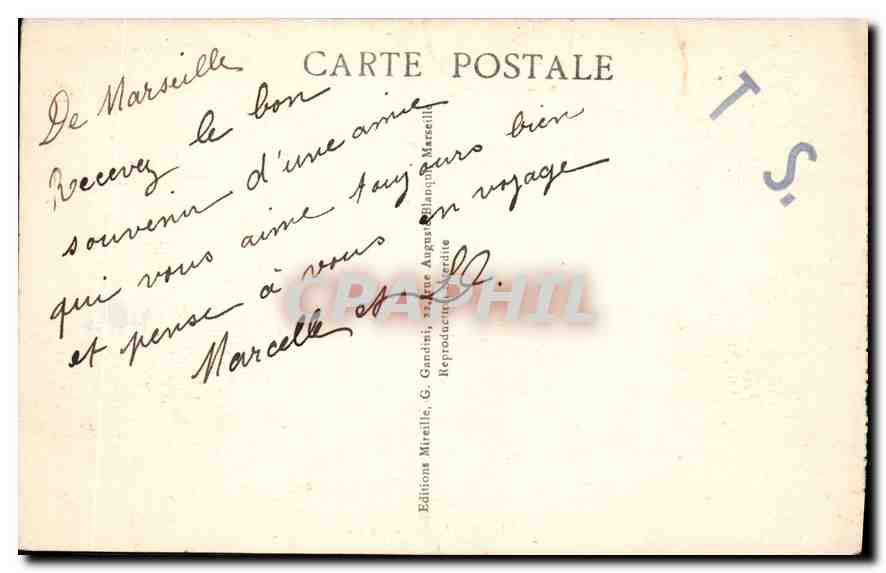 CARTE POSTALE
T S.
De Marseille
Recevez le bon
souvenir d'une amie
qui vous aime toujours bien
et pense à vous en voyage
Marcelle et
Editions Mireille, G. Gandini, 22, rue Auguste Blanqui, Marseille
Reproduction interdite
CPAPHIL